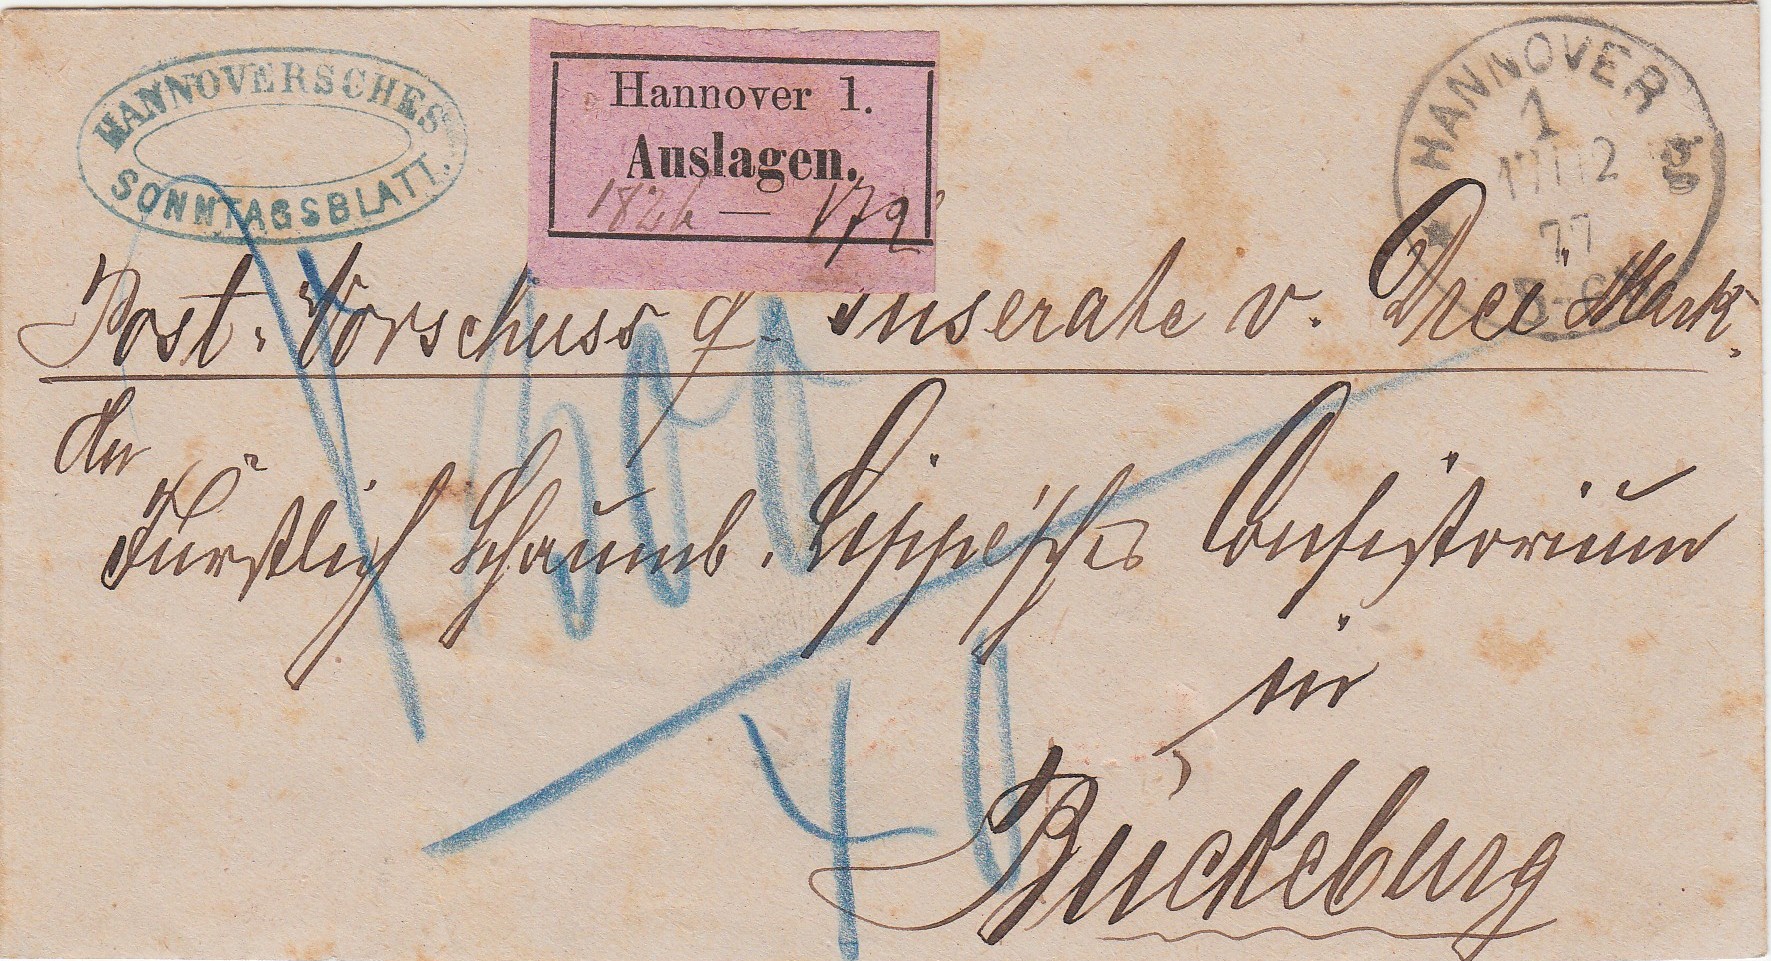 HANNOVERSCHES
SONNTAGSBLATT.
Hannover 1.
Auslagen.
172
HANNOVER
1
17 12
77
Post-Vorschuss f. Inserate v. Drei Mark.
An
Fürstlich Schaumb. Lippe'sches Consistorium
in
Bückeburg
40